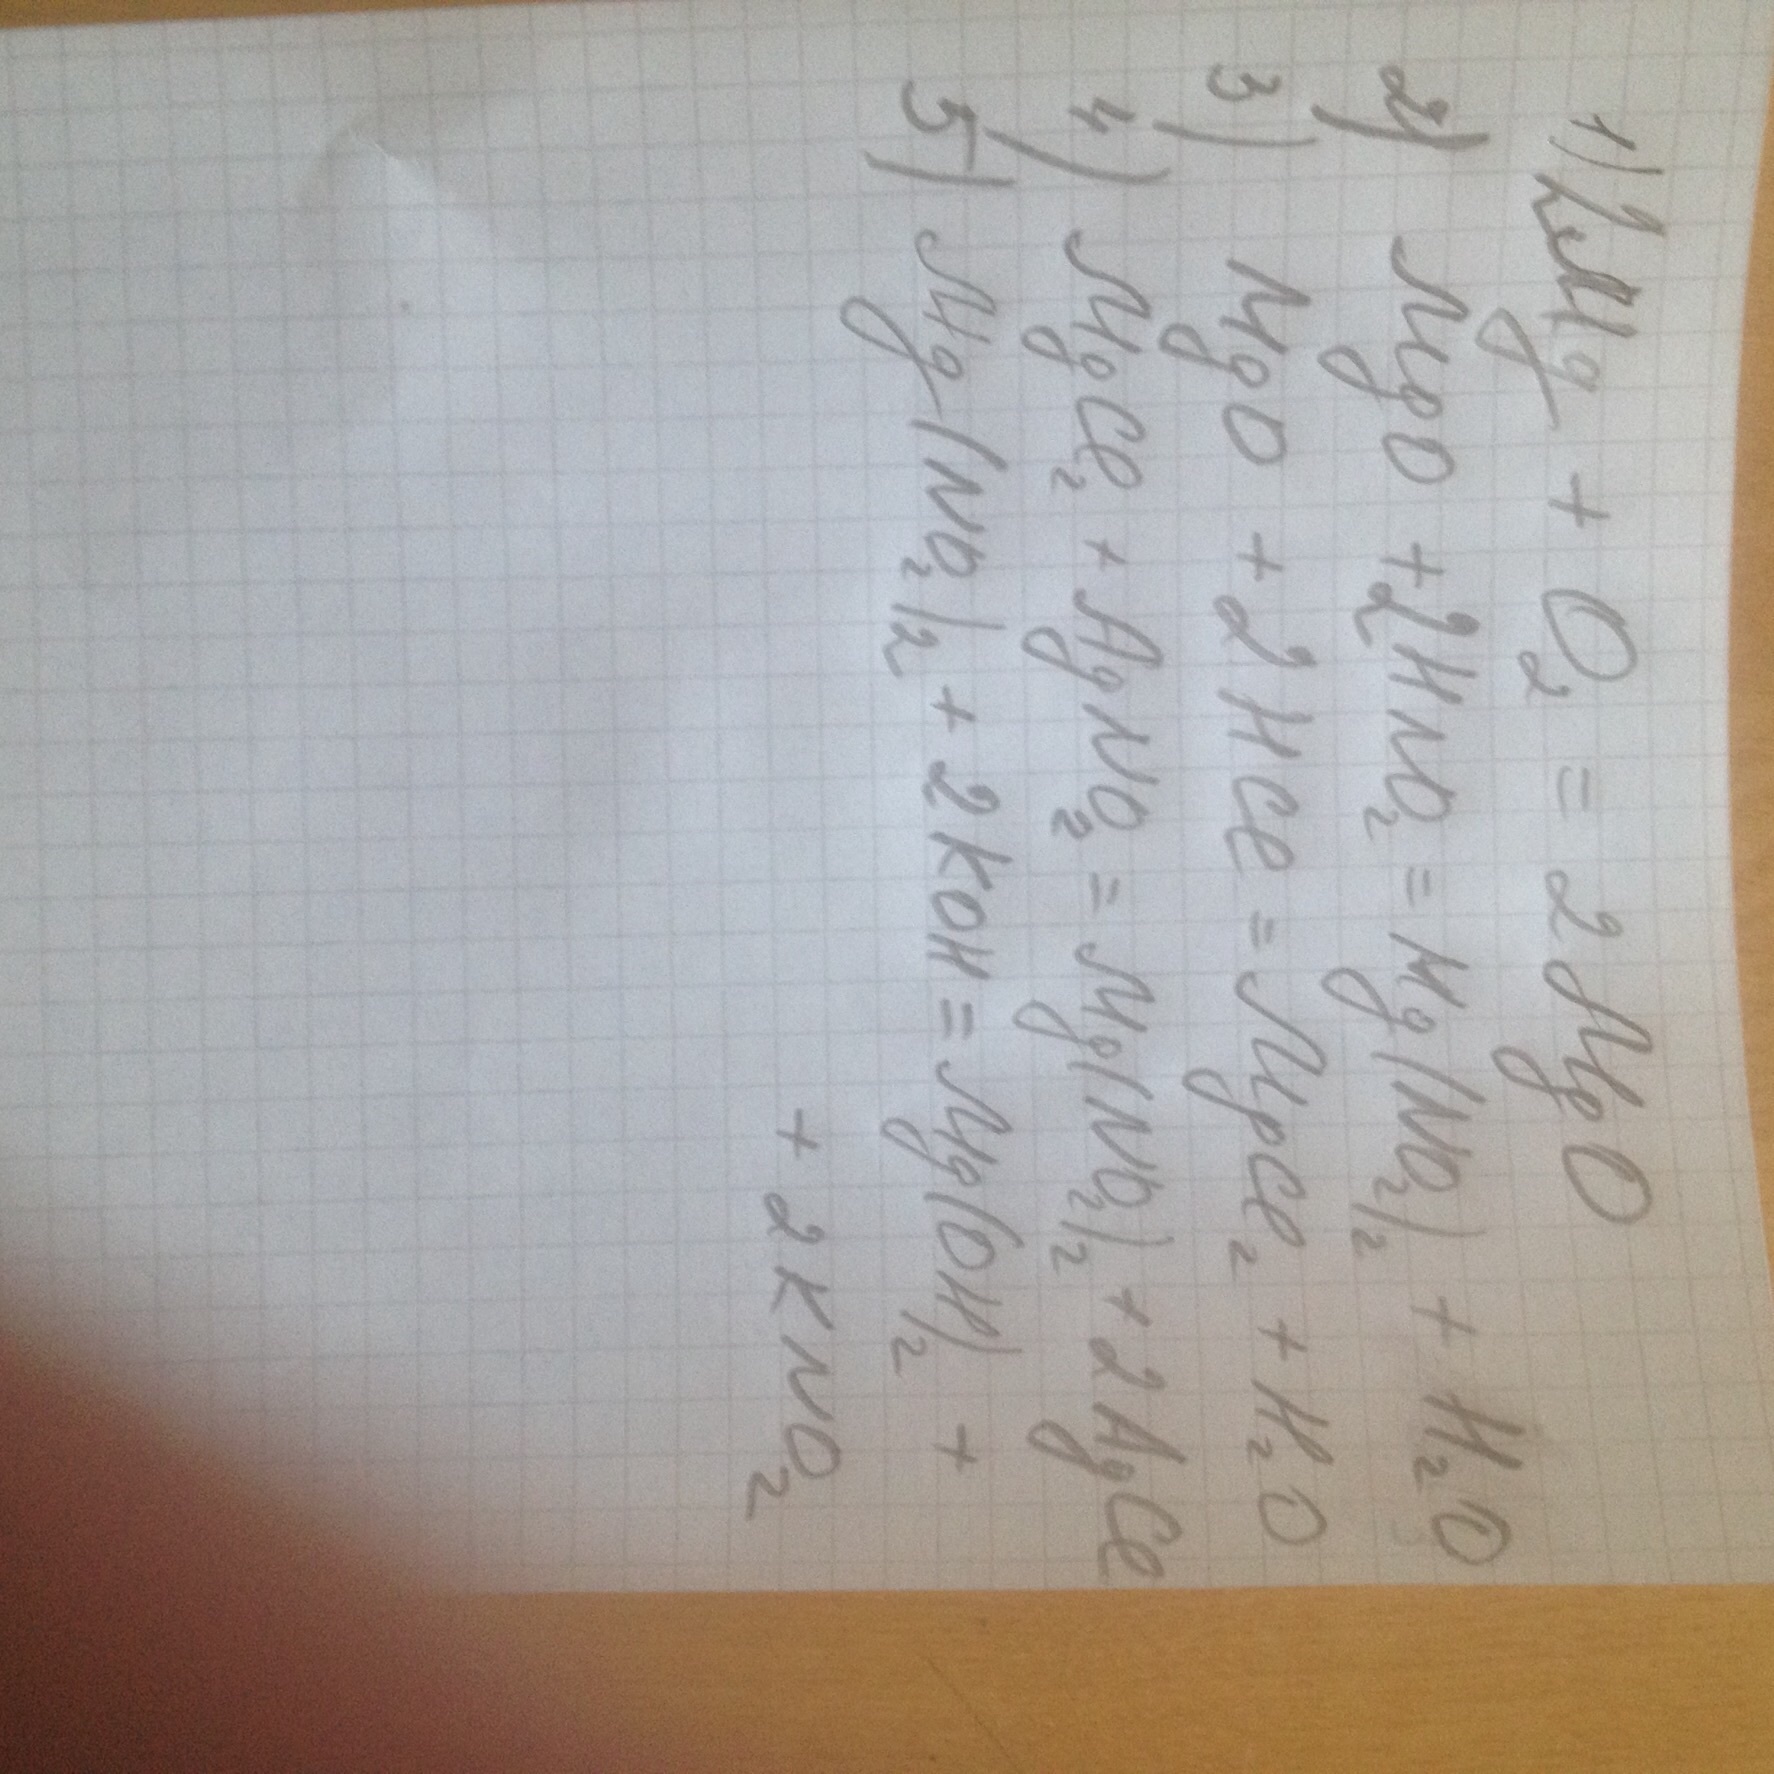 1) 2Mg + O₂ = 2MgO
2) MgO + 2HNO₂ = Mg(NO₂)₂ + H₂O
3) MgO + 2HCl = MgCl₂ + H₂O
4) MgCl₂ + AgNO₂ = Mg(NO₂)₂ + 2AgCl
5) Mg(NO₂)₂ + 2KOH = Mg(OH)₂ +
+ 2KNO₂